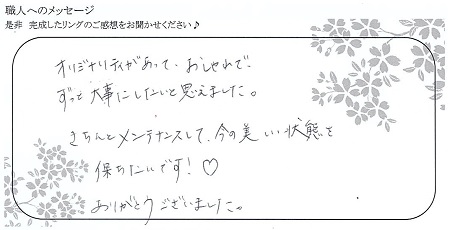 職人へのメッセージ
是非 完成したリングのご感想をお聞かせください♪
オリジナリティがあって、おしゃれで
ずっと大事にしたいと思えました。
きちんとメンテナンスして、今の美しい状態を
保ちたいです！♡
ありがとうございました。